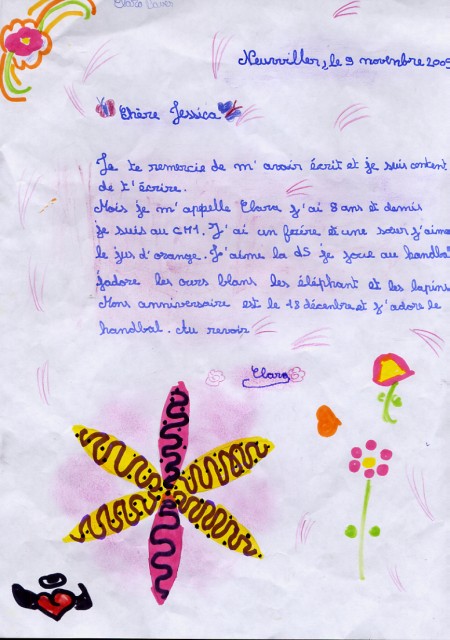 Neuviller, le 9 novembre 2009
Chère Jessica
Je te remercie de m'avoir écrit et je suis content
de t'écrire.
Mois je m'appelle Clara j'ai 8 ans et demis
je suis au CM1. J'ai un frére et une sœur j'aime
le jus d'orange. J'aime la dS je joue au handba
j'adore les ours blans les éléphant et les lapins
Mons anniversaire est le 18 décembre et j'adore le
handbal. Au revoir
Clara